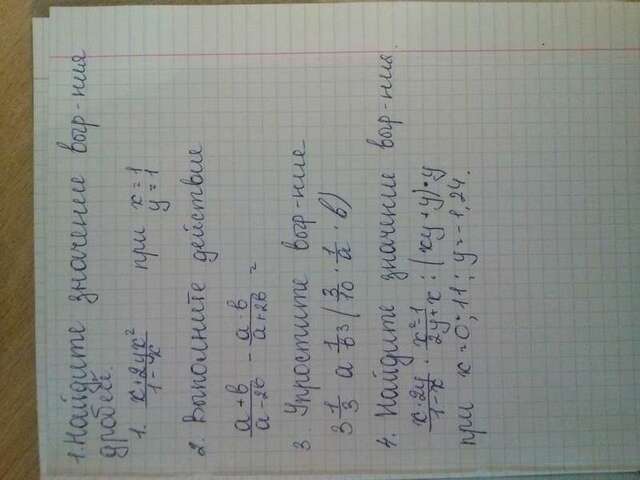 1. Найдите значение выр-ния
дробей.
1. x+2yx²/1-x при x=1
y=1
2. Выполните действие
a+b/a-2b - a-b/a+2b =
3. Упростите выр-ние
3 1/3 a 1/b3 : (3/10 · 1/a · b)
4. Найдите значение выр-ния
x·2y/1-x · x²-1/2y+x : (xy+y)·y
при x=0,11; y=-1,24.